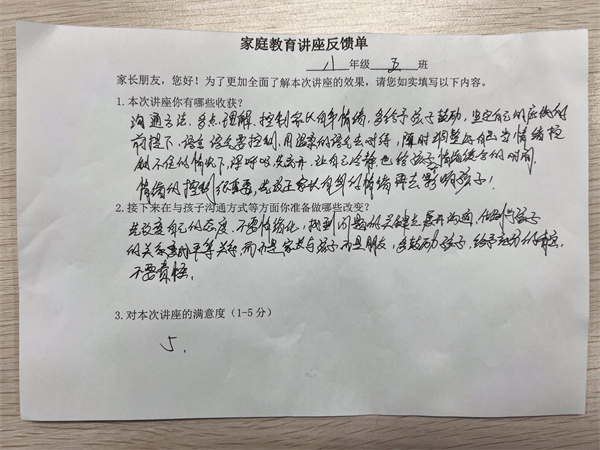 家庭教育讲座反馈单
八 年级 五 班
家长朋友，您好！为了更加全面了解本次讲座的效果，请您如实填写以下内容。
1.本次讲座你有哪些收获？
沟通方法、多点理解、控制家长自身情绪，多给予孩子鼓励，
前提下，语言语气要控制，用温柔的语气去对待，随时调整好自己当情绪控
制不住的情况下，深呼吸先离开，让自己冷静也给孩子情绪缓和的时间
情绪的控制很重要，家长自身的情绪再去影响孩子！
2.接下来在与孩子沟通方式等方面你准备做哪些改变？
先改变自己的态度，不要情绪化，找到问题的关键点展开沟通，与孩子
的关系平等关系，家长与孩子是朋友，多鼓励孩子，给予充分的肯定，
不要责怪。
3.对本次讲座的满意度（1-5分）
5.